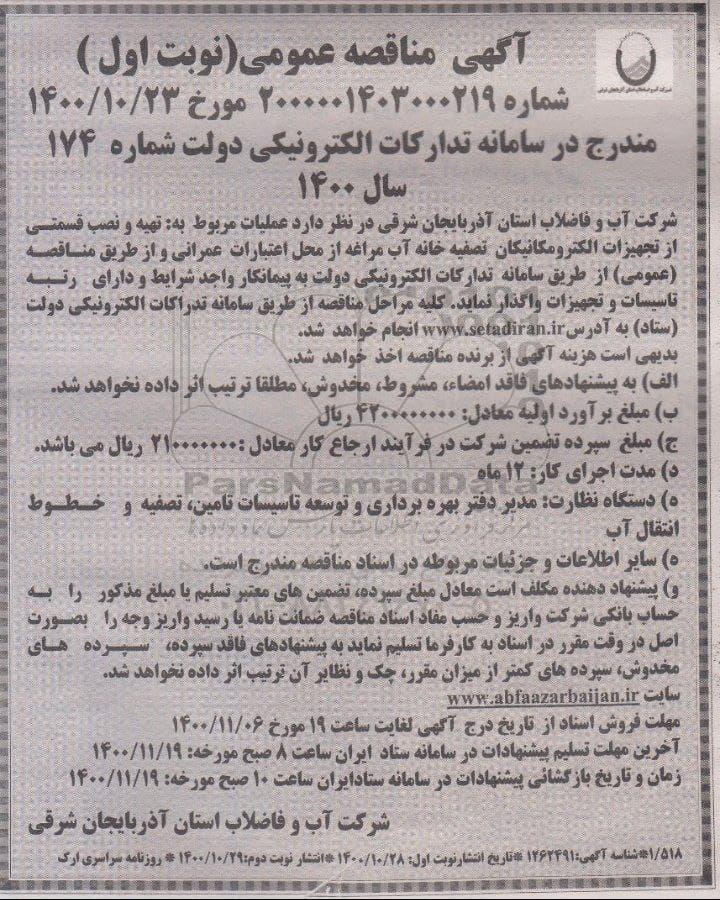 آگهی مناقصه عمومی(نوبت اول )
شماره ۲۰۰۰۰۰۱۴۰۳۰۰۰۲۱۹ مورخ ۱۴۰۰/۱۰/۲۳
مندرج در سامانه تدارکات الکترونیکی دولت شماره ۱۷۴
سال ۱۴۰۰
شرکت آب و فاضلاب استان آذربایجان شرقی در نظر دارد عملیات مربوط به: تهیه و نصب قسمتی
از تجهیزات الکترومکانیکان تصفیه خانه آب مراغه از محل اعتبارات عمرانی و از طریق مناقصه
(عمومی) از طریق سامانه تدارکات الکترونیکی دولت به پیمانکار واجد شرایط و دارای رتبه
تاسیسات و تجهیزات واگذار نماید. کلیه مراحل مناقصه از طریق سامانه تدراکات الکترونیکی دولت
(ستاد) به آدرس www.setadiran.ir انجام خواهد شد.
بدیهی است هزینه آگهی از برنده مناقصه اخذ خواهد شد.
الف) به پیشنهادهای فاقد امضاء، مشروط، مخدوش، مطلقا ترتیب اثر داده نخواهد شد.
ب) مبلغ برآورد اولیه معادل: ۴۲۰۰۰۰۰۰۰۰ ریال
ج) مبلغ سپرده تضمین شرکت در فرآیند ارجاع کار معادل :۲۱۰۰۰۰۰۰۰ ریال می باشد.
د) مدت اجرای کار: ۱۲ ماه
ه) دستگاه نظارت: مدیر دفتر بهره برداری و توسعه تاسیسات تامین، تصفیه و خطوط
انتقال آب
ه) سایر اطلاعات و جزئیات مربوطه در اسناد مناقصه مندرج است.
و) پیشنهاد دهنده مکلف است معادل مبلغ سپرده، تضمین های معتبر تسلیم یا مبلغ مذکور را به
حساب بانکی شرکت واریز و حسب مفاد اسناد مناقصه ضمانت نامه یا رسید واریز وجه را بصورت
اصل در وقت مقرر در اسناد به کارفرما تسلیم نماید به پیشنهادهای فاقد سپرده، سپرده های
مخدوش، سپرده های کمتر از میزان مقرر، چک و نظایر آن ترتیب اثر داده نخواهد شد.
سایت www.abfaazarbaijan.ir
مهلت فروش اسناد از تاریخ درج آگهی لغایت ساعت ۱۹ مورخ ۱۴۰۰/۱۱/۰۶
آخرین مهلت تسلیم پیشنهادات در سامانه ستاد ایران ساعت ۸ صبح مورخه: ۱۴۰۰/۱۱/۱۹
زمان و تاریخ بازگشائی پیشنهادات در سامانه ستادایران ساعت ۱۰ صبح مورخه: ۱۴۰۰/۱۱/۱۹
شرکت آب و فاضلاب استان آذربایجان شرقی
۱/۵۱۸*شناسه آگهی:۱۲۶۲۴۹۱ *تاریخ انتشارنوبت اول: ۱۴۰۰/۱۰/۲۸ *انتشار نوبت دوم:۱۴۰۰/۱۰/۲۹ * روزنامه سراسری ارک
ParsNamadData